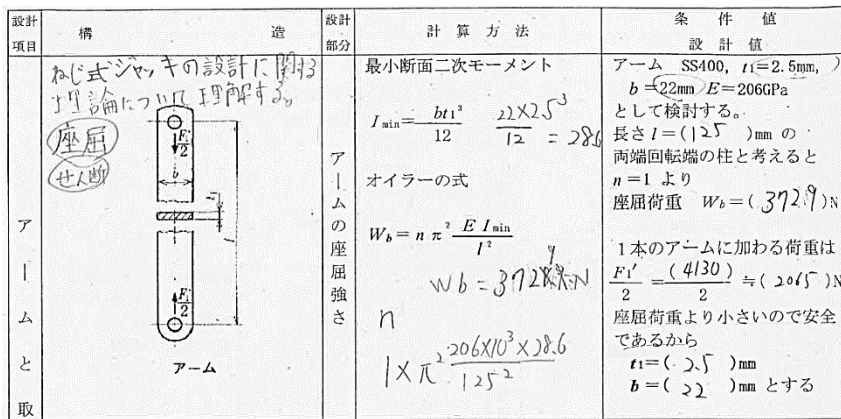 設計項目
構造
設計部分
計算方法
条件値
設計値
ねじ式ジャッキの設計に関する
理論について理解する。
座屈
せん断
F₁'/2
b
t₁
l
F₁'/2
アーム
アームと取
アームの座屈強さ
最小断面二次モーメント
I min = bt₁³/12 22×2.5³/12 = 28.6
オイラーの式
W b = n π² E I min / l²
Wb = 372 N
n
1×π² 206×10³×28.6 / 125²
アーム SS400, t₁=2.5mm,
b=22mm E=206GPa
として検討する。
長さ l=(125)mm の
両端回転端の柱と考えると
n=1 より
座屈荷重 Wb=(372.9)N
1本のアームに加わる荷重は
F₁'/2 = (4130)/2 ≒(2065)N
座屈荷重より小さいので安全
であるから
t₁=(2.5)mm
b=(22)mm とする